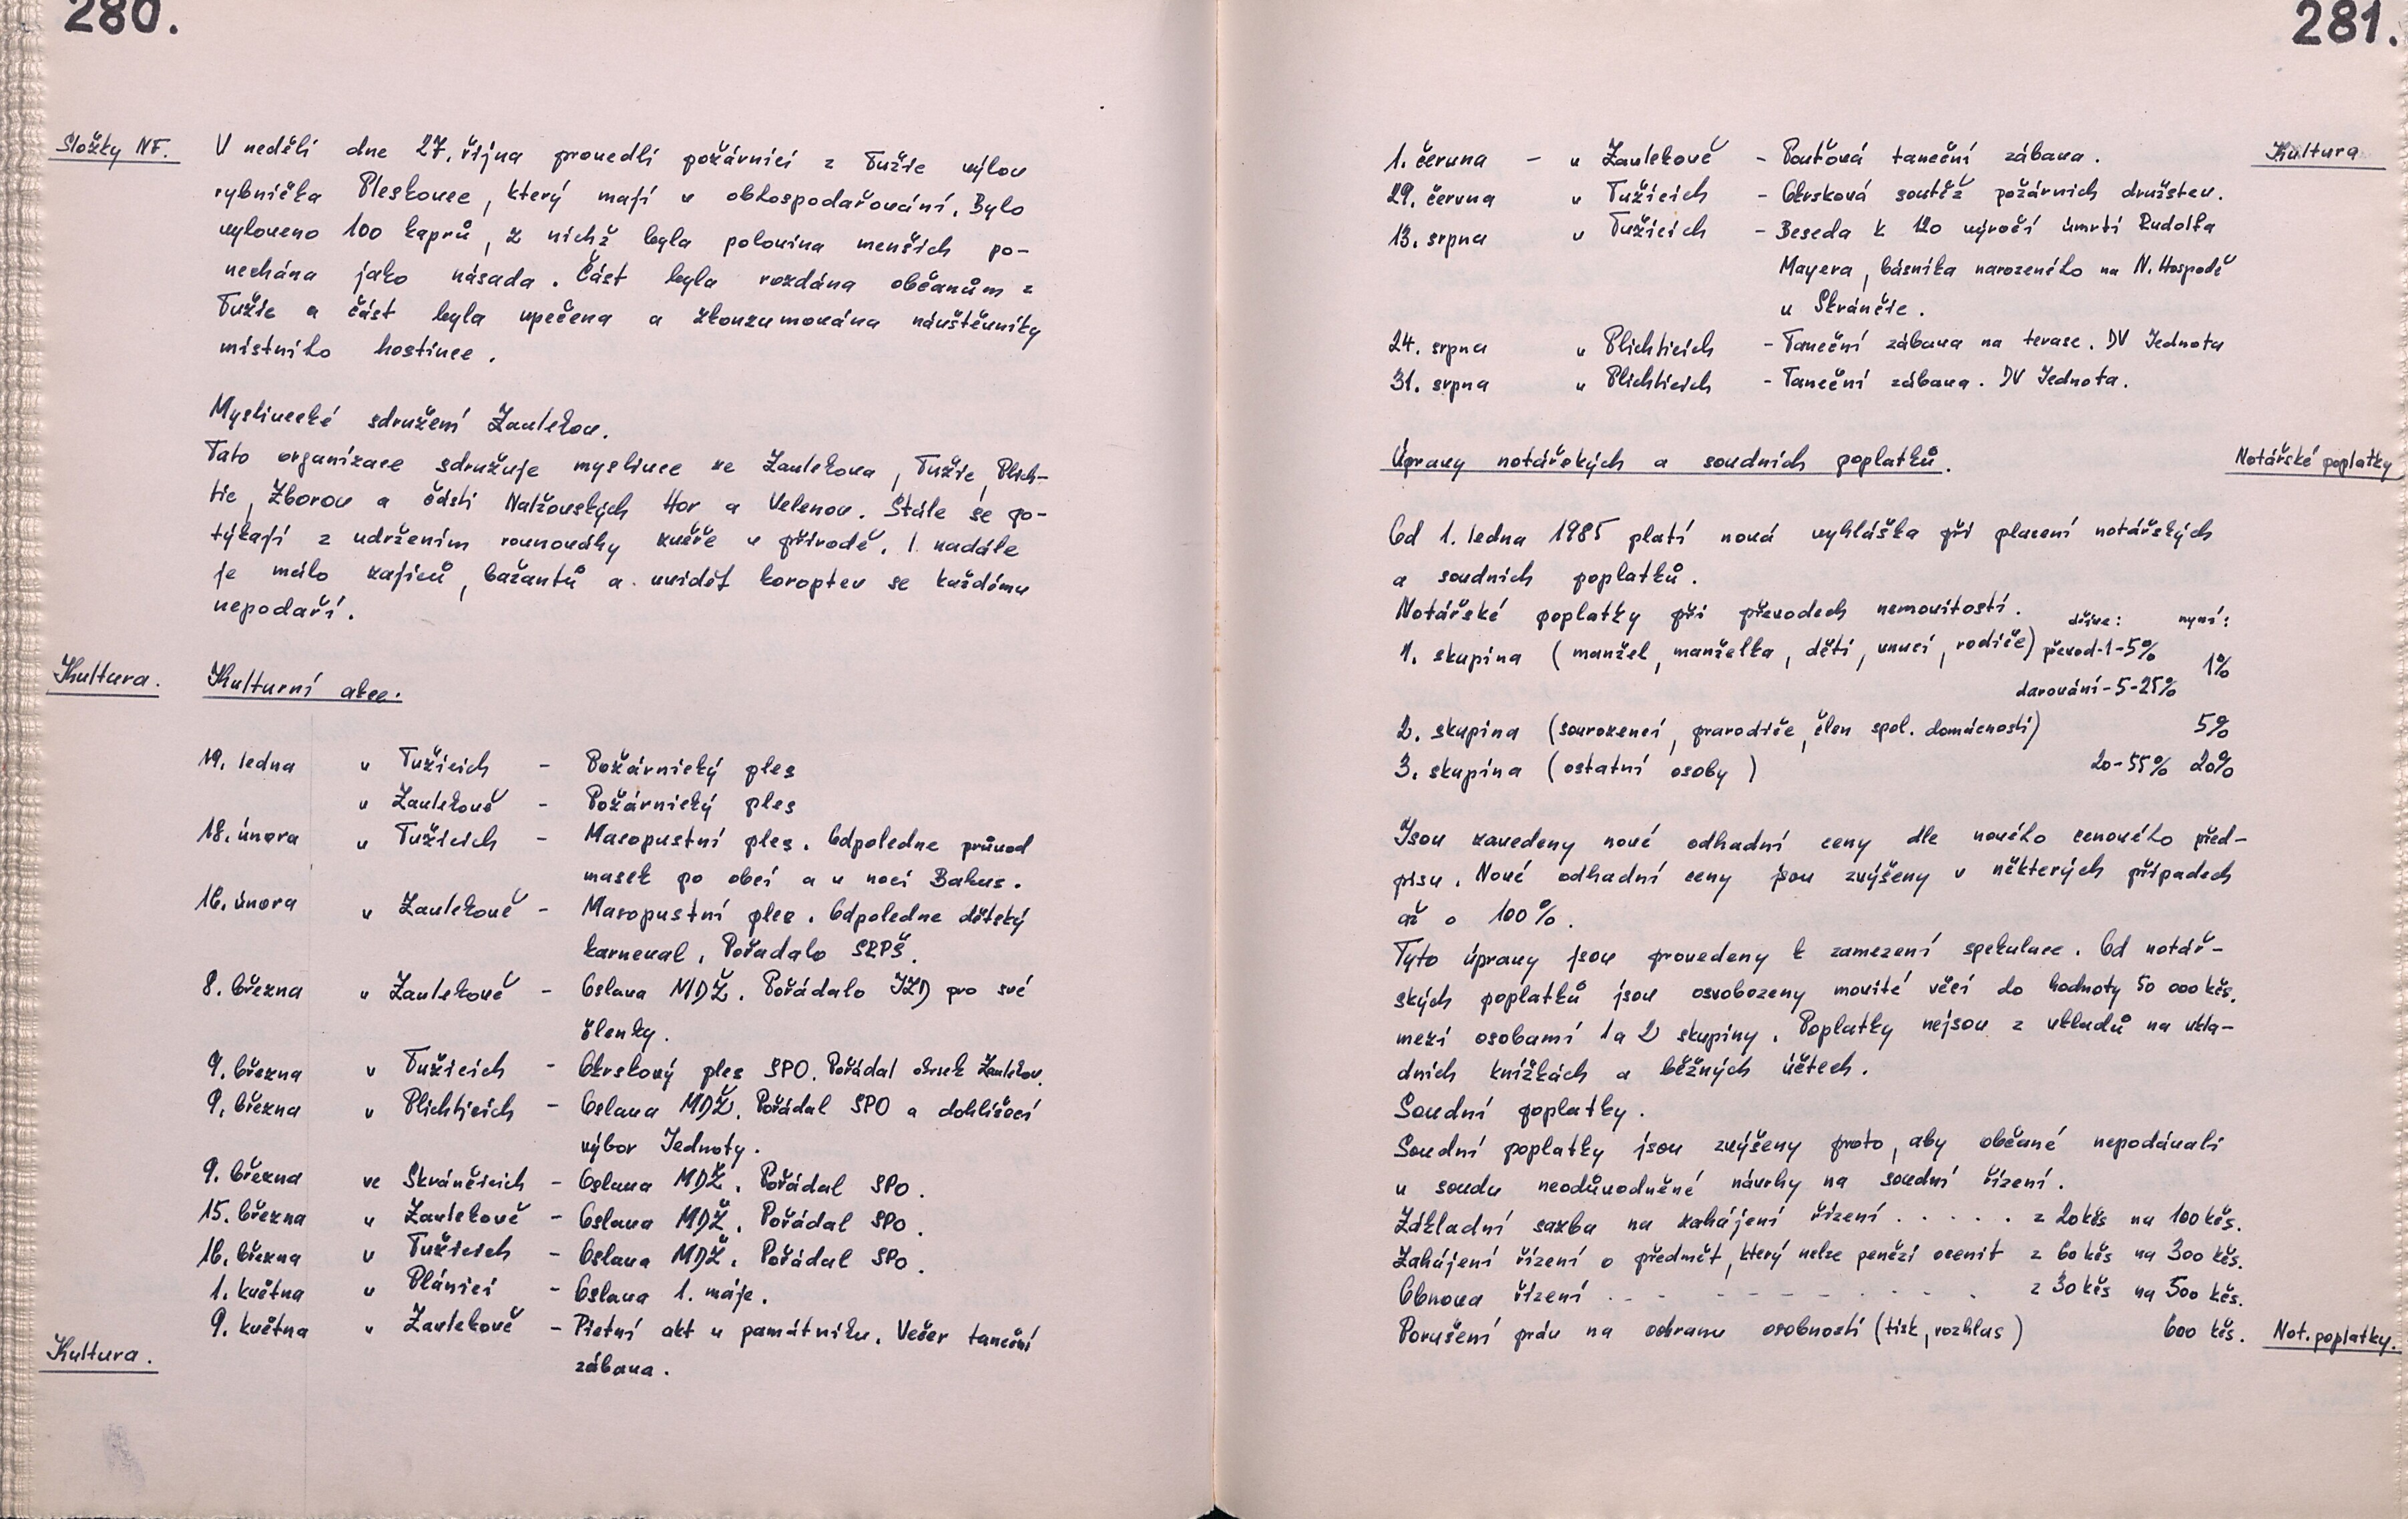 280.
Složky NF.
V neděli dne 27. října provedli požárníci z Tužic výlov
rybníčka Pleskovce, který mají v obhospodařování. Bylo
vyloveno 100 kaprů, z nichž byla polovina menších po-
nechána jako násada. Část byla rozdána občanům z
Tužic a část byla upečena a zkonzumována návštěvníky
místního hostince.
Myslivecké sdružení Zavlekov.
Tato organizace sdružuje myslivce ze Zavlekova, Tužic, Plich-
tic, Zborov a části Nalžovských Hor a Velenov. Stále se po-
týkají z udržením rovnováhy zvěře v přírodě. I nadále
je málo zajíců, bažantů a uvidět koroptev se každému
nepodaří.
Kultura.
Kulturní akce:
19. ledna v Tužicích - Požárnický ples
v Zavlekově - Požárnický ples
18. února v Tužicích - Masopustní ples. Odpoledne průvod
masek po obci a v noci Bakus.
16. února v Zavlekově - Masopustní ples. Odpoledne dětský
karneval. Pořadalo SRPŠ.
8. března v Zavlekově - Oslava MDŽ. Pořádalo JZD pro své
členky.
9. března v Tužicích - Okrskový ples SPO. Pořádal okrsek Zavlekov.
9. března v Plichticích - Oslava MDŽ. Pořádal SPO a dohlížecí
výbor Jednoty.
9. března ve Skránčicích - Oslava MDŽ. Pořádal SPO.
15. března v Zavlekově - Oslava MDŽ. Pořádal SPO.
16. března v Tužicích - Oslava MDŽ. Pořádal SPO.
1. května v Plánici - Oslava 1. máje.
9. května v Zavlekově - Pietní akt u památníku. Večer taneční
zábava.
Kultura.
281.
Kultura
1. června - v Zavlekově - Pouťová taneční zábava.
29. června v Tužicích - Okrsková soutěž požárních družstev.
13. srpna v Tužicích - Beseda k 120 výročí úmrtí Rudolfa
Mayera, básníka narozeného na N. Hospodě
u Skránčic.
24. srpna v Plichticích - Taneční zábava na terase. DV Jednota
31. srpna v Plichticích - Taneční zábava. DV Jednota.
Úpravy notářských a soudních poplatků.
Notářské poplatky
Od 1. ledna 1985 platí nová vyhláška při placení notářských
a soudních poplatků.
Notářské poplatky při převodech nemovitostí. dříve: nyní:
1. skupina (manžel, manželka, děti, vnuci, rodiče) převod-1-5% 1%
darování-5-25%
2. skupina (sourozenci, prarodiče, člen spol. domácnosti) 5%
3. skupina (ostatní osoby) 20-55% 20%
Jsou zavedeny nové odhadní ceny dle nového cenového před-
pisu. Nové odhadní ceny jsou zvýšeny v některých případech
až o 100%.
Tyto úpravy jsou provedeny k zamezení spekulace. Od notář-
ských poplatků jsou osvobozeny movité věci do hodnoty 50 000 kčs.
mezi osobami 1 a 2 skupiny. Poplatky nejsou z vkladů na vkla-
dních knížkách a běžných účtech.
Soudní poplatky.
Soudní poplatky jsou zvýšeny proto, aby občané nepodávali
u soudu neodůvodněné návrhy na soudní řízení.
Základní sazba na zahájení řízení . . . . . z 20 kčs na 100 kčs.
Zahájení řízení o předmět, který nelze penězi ocenit z 60 kčs na 300 kčs.
Obnova řízení . - - - - - - . . . . z 30 kčs na 500 kčs.
Porušení práv na ochranu osobnosti (tisk, rozhlas) 600 kčs.
Not. poplatky.